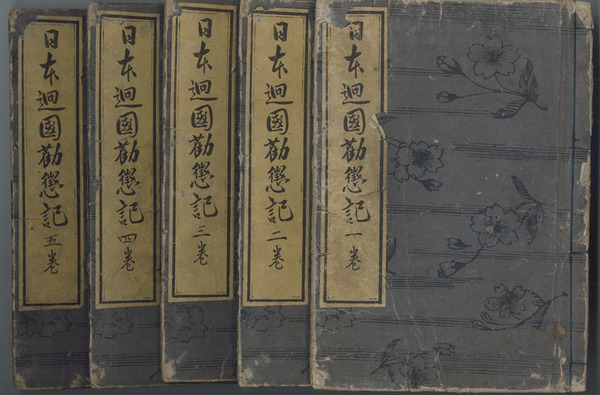 日本廻國勸懲記 一巻
日本廻國勸懲記 二巻
日本廻國勸懲記 三巻
日本廻國勸懲記 四巻
日本廻國勸懲記 五巻